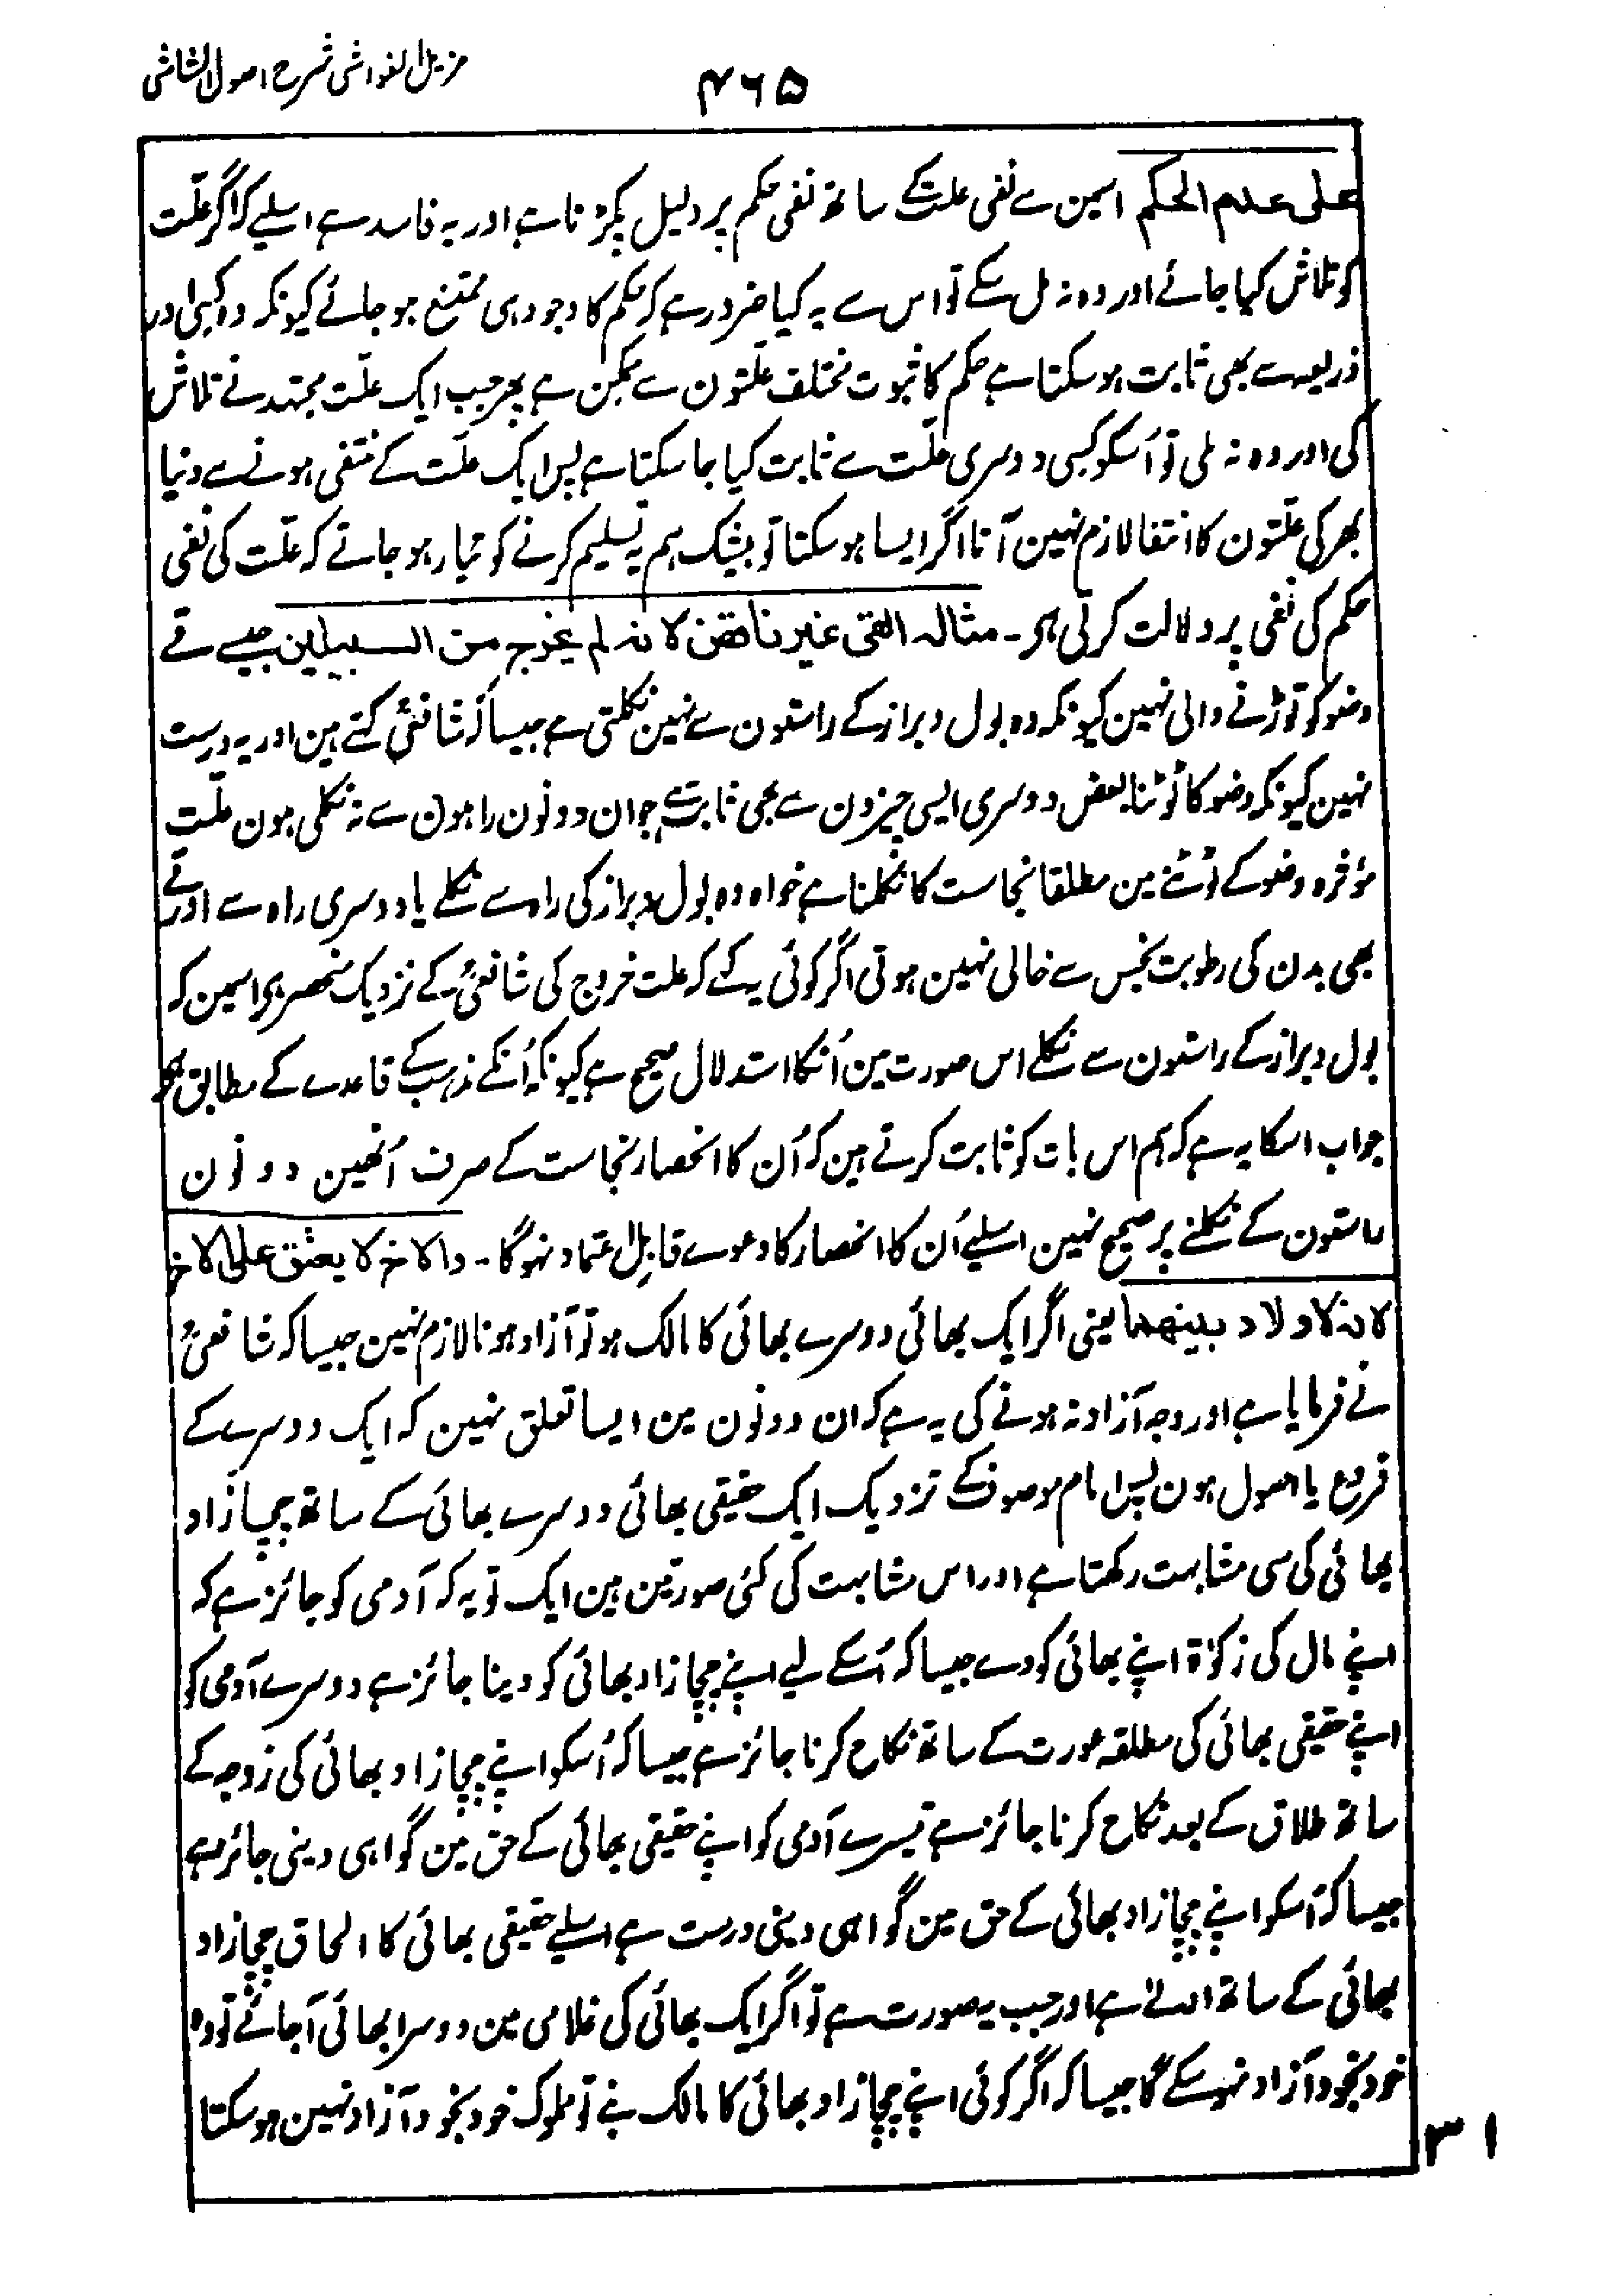 مزیل الغواشی شرح اصول الشاشی
۴۶۵
علی عدم الحکم اسمین سے نفی علت کے ساتھ نفی حکم پر دلیل پکڑنا ہے اور یہ فاسد ہے اسلیے کہ اگر علّت
کو تلاش کیا جائے اور وہ نہ مل سکے تو اس سے یہ کیا ضرور ہے کہ حکم کا وجود ہی ممتنع ہو جائے کیونکہ وہ کسی اور
ذریعہ سے بھی ثابت ہو سکتا ہے حکم کا ثبوت مختلف علّتون سے ممکن ہے پھر جب ایک علّت مجتہد نے تلاش
کی اور وہ نہ ملی تو اُسکو کسی دوسری علّت سے ثابت کیا جا سکتا ہے پس ایک علّت کے منتفی ہونے سے دنیا
بھر کی علّتون کا انتفا لازم نہین آتا اگر ایسا ہو سکتا تو بیشک ہم یہ تسلیم کرنے کو تیار ہو جاتے کہ علّت کی نفی
حکم کی نفی پر دلالت کرتی ہی۔ مثالہ القی غیر ناقض لانہ لم یخرج من السبیلین جیسے قے
وضو کو توڑنے والی نہین کیونکہ وہ بول و براز کے راستون سے نہین نکلتی ہے جیسا کہ شافعیؒ کہتے ہین اور یہ درست
نہین کیونکہ وضو کا ٹوٹنا بعض دوسری ایسی چیزون سے بھی ثابت ہے جو ان دونون راہون سے نہ نکلی ہون علّت
مؤثرہ وضو کے ٹوٹنے مین مطلقا نجاست کا نکلنا ہے خواہ وہ بول و براز کی راہ سے نکلے یا دوسری راہ سے اور قے
بھی بدن کی رطوبت نجس سے خالی نہین ہوتی اگر کوئی یہ کہے کہ علت خروج کی شافعیؒ کے نزدیک منحصر ہی اسمین کہ
بول و براز کے راستون سے نکلے اس صورت مین اُنکا استدلال صحیح ہے کیونکہ اُنکے مذہب کے قاعدے کے مطابق ہی
جواب اسکا یہ ہے کہ ہم اس بات کو ثابت کرتے ہین کہ اُن کا انحصار نجاست کے صرف اُنھین دونون
راستون کے نکلنے پر صحیح نہین اسلیے اُن کا انحصار کا دعوے قابل اعتماد نہوگا۔ والاخ لا یعتق علی الاخ
لانہ لا ولاد بینھما یعنی اگر ایک بھائی دوسرے بھائی کا مالک ہو تو آزاد ہونا لازم نہین جیسا کہ شافعیؒ
نے فرمایا ہے اور وجہ آزاد نہ ہونے کی یہ ہے کہ ان دونون مین ایسا تعلق نہین کہ ایک دوسرے کے
فروع یا اصول ہون پس امام موصوف کے نزدیک ایک حقیقی بھائی دوسرے بھائی کے ساتھ چچا زاد
بھائی کی سی مشابہت رکھتا ہے اور اس مشابہت کی کئی صورتین ہین ایک تو یہ کہ آدمی کو جائز ہے کہ
اپنے مال کی زکوٰۃ اپنے بھائی کو دے جیسا کہ اُسکے لیے اپنے چچا زاد بھائی کو دینا جائز ہے دوسرے آدمی کو
اپنے حقیقی بھائی کی مطلقہ عورت کے ساتھ نکاح کرنا جائز ہے جیسا کہ اُسکو اپنے چچا زاد بھائی کی زوجہ کے
ساتھ طلاق کے بعد نکاح کرنا جائز ہے تیسرے آدمی کو اپنے حقیقی بھائی کے حق مین گواہی دینی جائز ہے
جیسا کہ اُسکو اپنے چچا زاد بھائی کے حق مین گواہی دینی درست ہے اسلیے حقیقی بھائی کا الحاق چچا زاد
بھائی کے ساتھ اولےٰ ہے اور جب یہ صورت ہے تو اگر ایک بھائی کی غلامی مین دوسرا بھائی آ جائے تو وہ
خود بخود آزاد نہو سکے گا جیسا کہ اگر کوئی اپنے چچا زاد بھائی کا مالک بنے تو مملوک خود بخود آزاد نہین ہو سکتا
۳۱